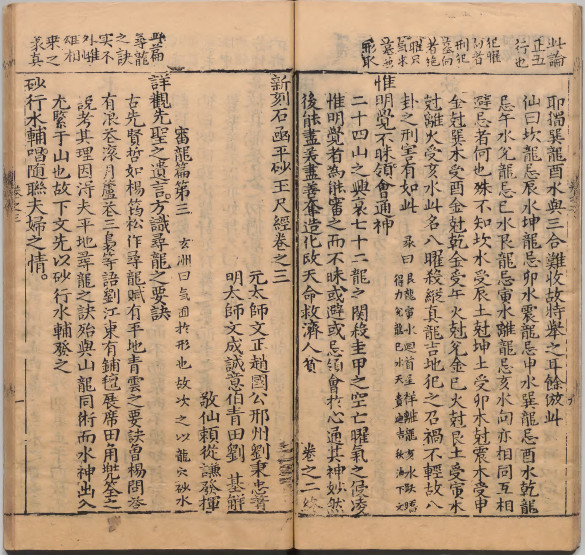 此論
正五
行也
犯曜
向者
刑犯
墓向
者絶
曜只
氣來
墓地
形取
耶猖巽龍酉水與三合難收故特舉之耳餘倣此
仙曰坎龍忌辰水坤龍忌卯水震龍忌申水巽龍忌酉水乾龍
忌午水兊龍忌巳水艮龍忌寅水離龍忌亥水向亦相同互相
避忌者何也殊不知坎水受辰土尅坤土受卯木尅震木受申
金尅巽木受酉金尅乾金受午火尅兊金巳火尅艮土受寅木
尅離火受亥水此名八曜殺縱真龍吉地犯之召禍不輕故八
卦之刑害有如此
惟明覺不昧領會通神
二十四山之興衰七十二龍之関移圭甲之空亡曜氣之侵凌
惟明覺者為能審之而不昧或避或忌領會於心通其神妙然
後能盡義盡善奪造化改天命救濟人貧
卷之二終
新刻石函平砂玉尺經卷之三
元太師文正趙國公邢州劉秉忠著
明太師文成誠意伯青田劉 基解
敬仙賴從謙發揮
審龍篇第三
詳觀先聖之遺言方識尋龍之要訣
古先賢哲如楊筠松作尋龍賦有平地青雲之要訣曽楊問答
有浪卷滚月廬卷三㐮等語劉江東有鋪氊展席田用
說考其理因淂夫平地尋龍之訣殆與山龍同術而水神出入
尤緊于山也故下文先以砂行水輔發之
砂行水輔喈随聯夫婦之情。
此篇
尋龍
之訣
实不
外雌
雄相
乗之
義真